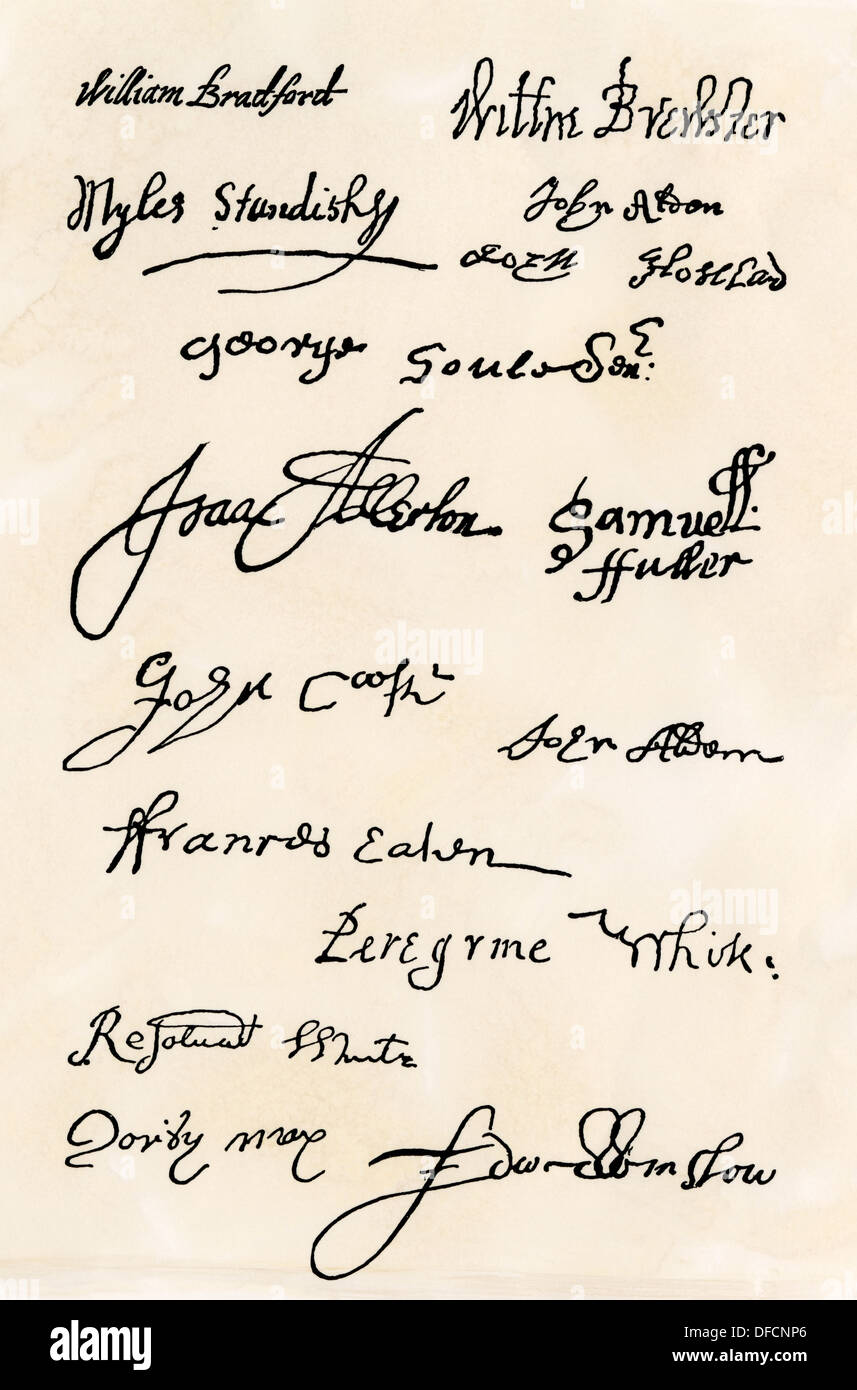 William Bradford
Willm Brewster
Myles Standish
John Alden
John Howland
George Soule Senr:
Isaac Allerton.
Samuell
ffuller
John Cooke
John Alden
ffrances Eaton
Peregrine White.
Resolued White
Edw Winslow
alamy
a
alamy stock photo
DFCNP6
www.alamy.com